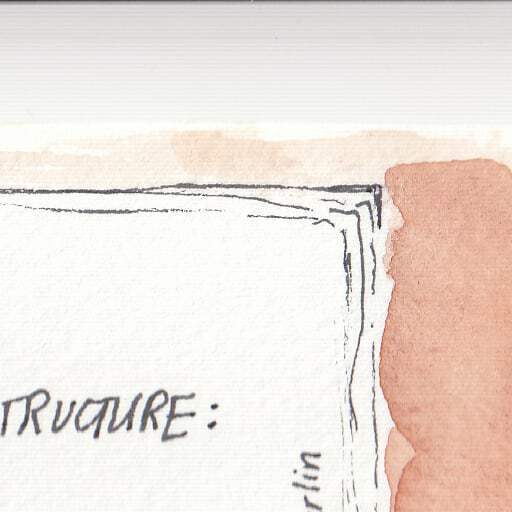 TRUCTURE:
rlin